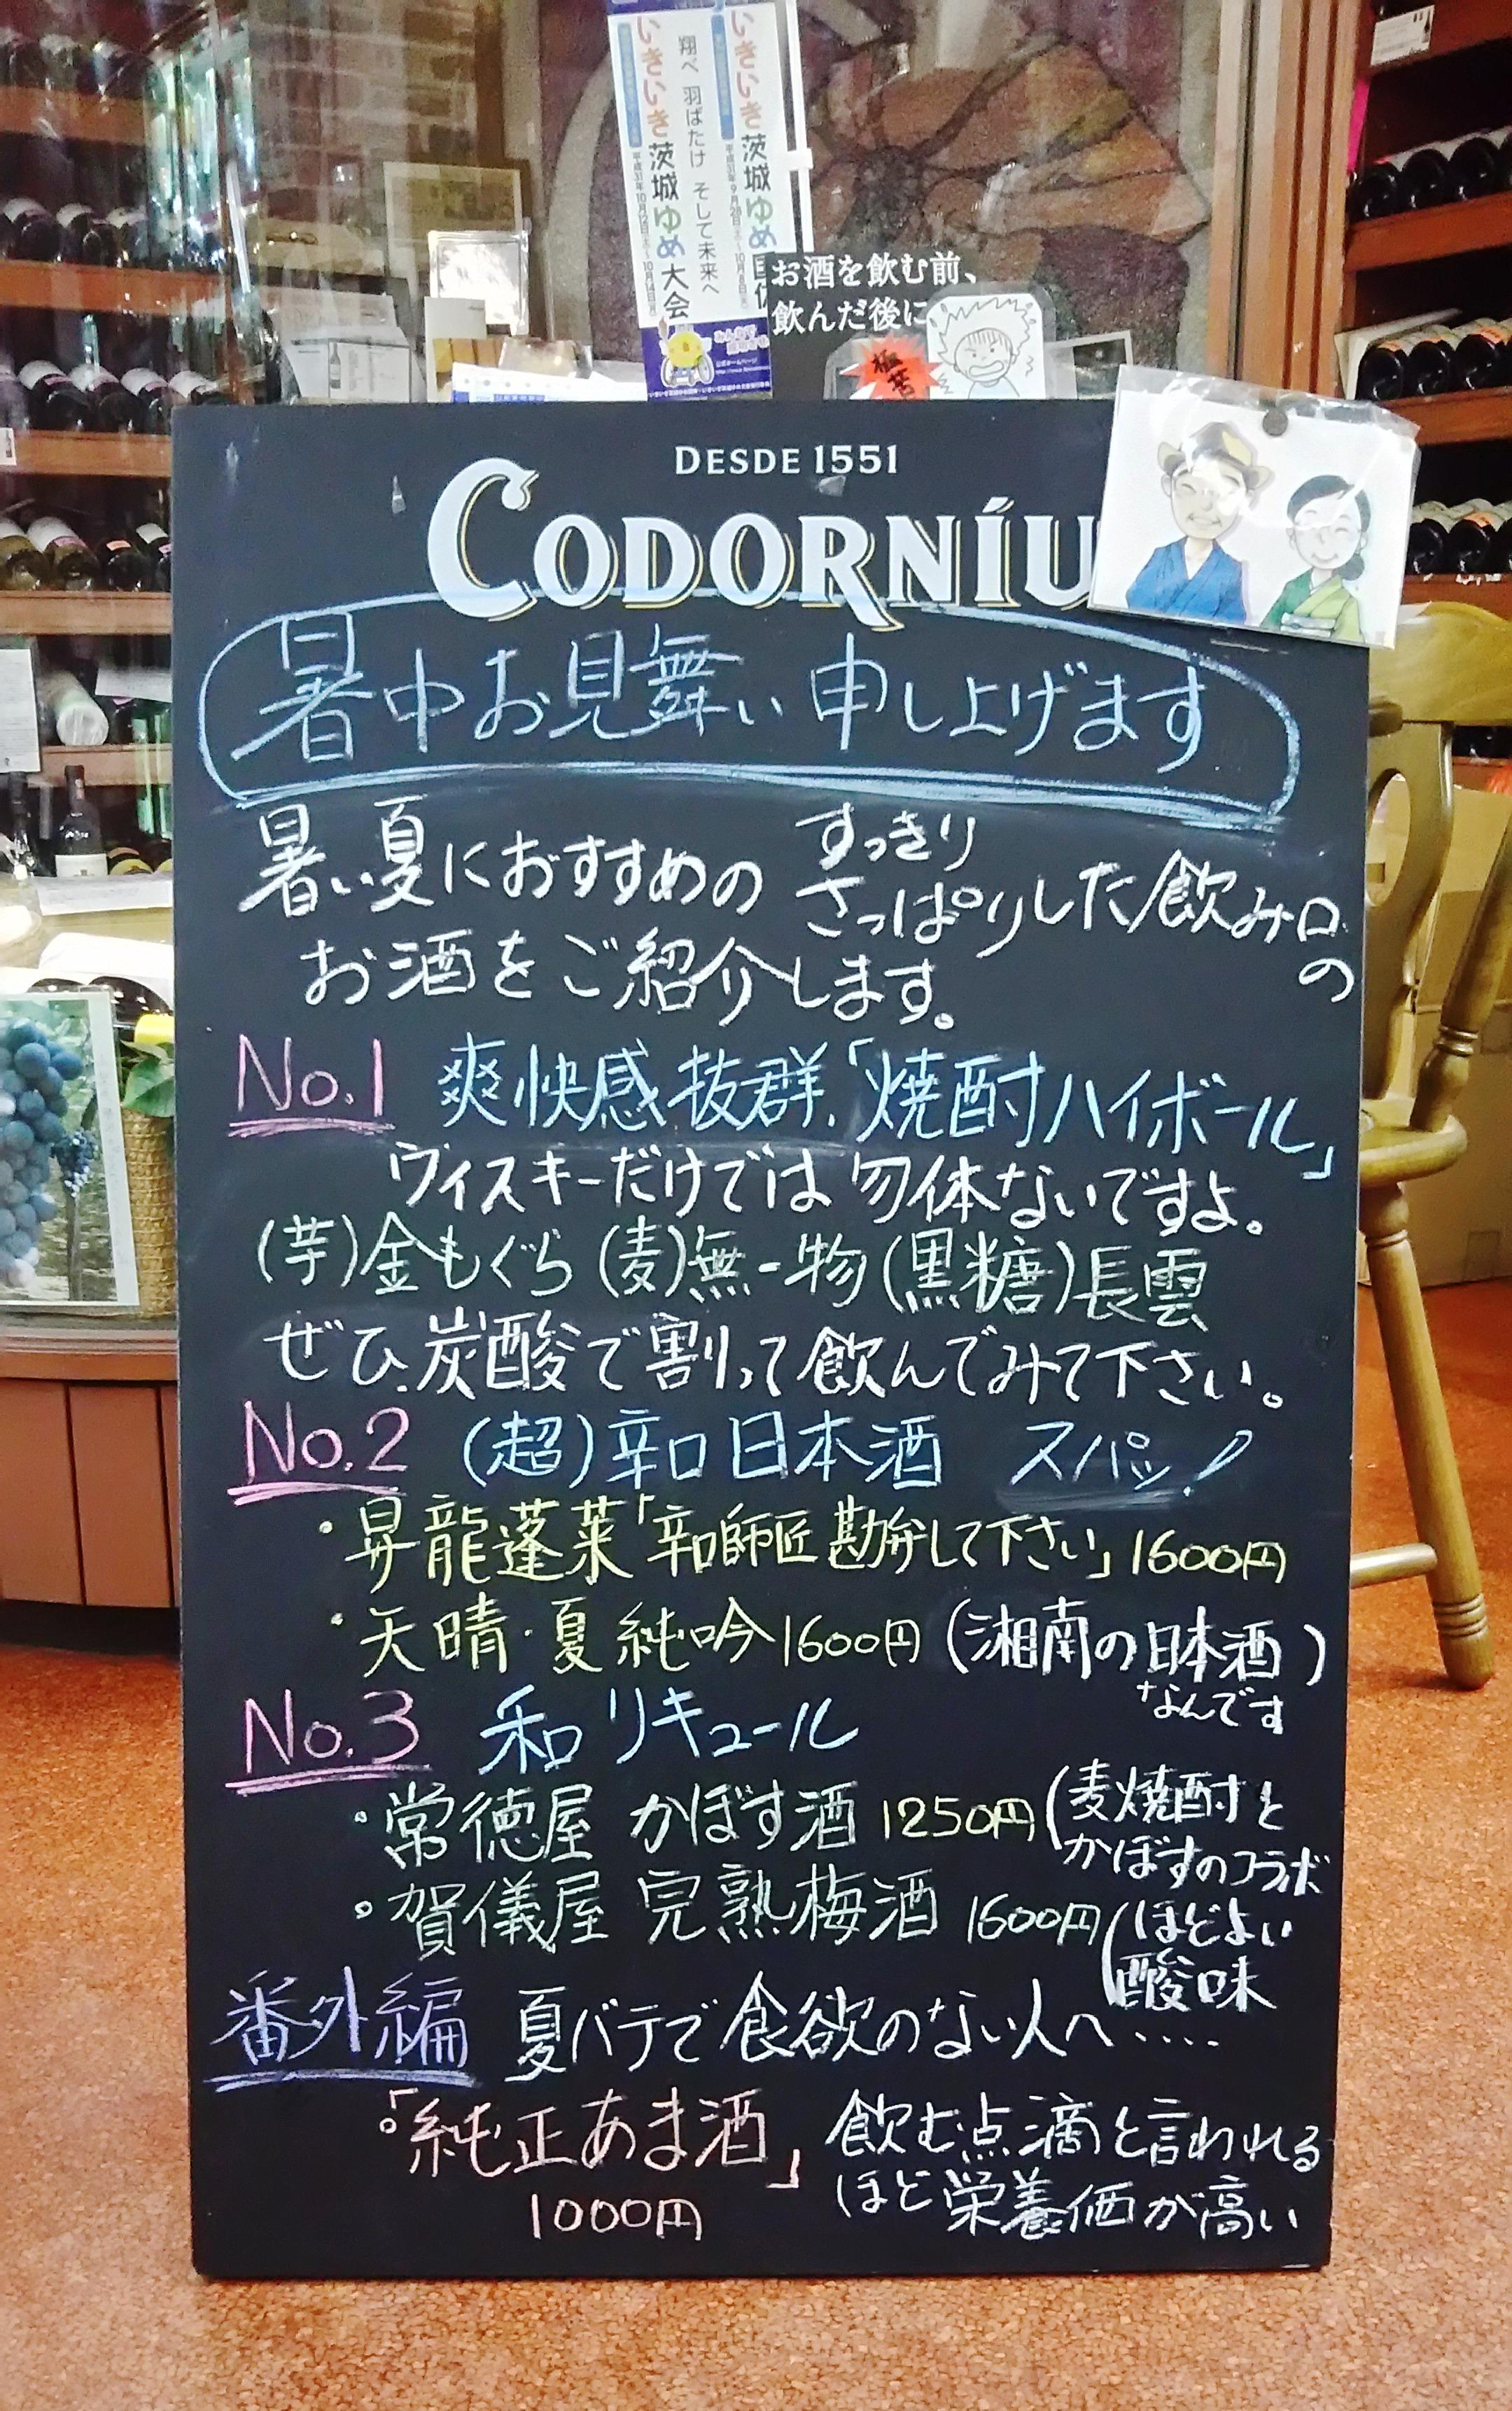 いきいき茨城ゆめ国体
翔べ 羽ばたけ そして未来へ
いきいき茨城ゆめ大会
お酒を飲む前、
飲んだ後に
DESDE 1551
CODORNÍU
暑中お見舞い申し上げます
暑い夏におすすめの すっきり
さっぱりした飲み口の
お酒をご紹介します。
No.1 爽快感抜群、「焼酎ハイボール」
ウィスキーだけでは勿体ないですよ。
(芋)金もぐら (麦)無一物 (黒糖)長雲
ぜひ、炭酸で割って飲んでみて下さい。
No.2 (超)辛口日本酒 スパッ!
・昇龍蓬莱「辛口師匠勘弁して下さい」1600円
・天晴・夏純吟1600円 (湘南の日本酒)
なんです
No.3 和リキュール
・常徳屋 かぼす酒 1250円 (麦焼酎と
かぼすのコラボ
・賀儀屋 完熟梅酒 1600円 (ほどよい
酸味
番外編 夏バテで食欲のない人へ・・・・
・「純正あま酒」 飲む点滴と言われる
ほど栄養価が高い
1000円